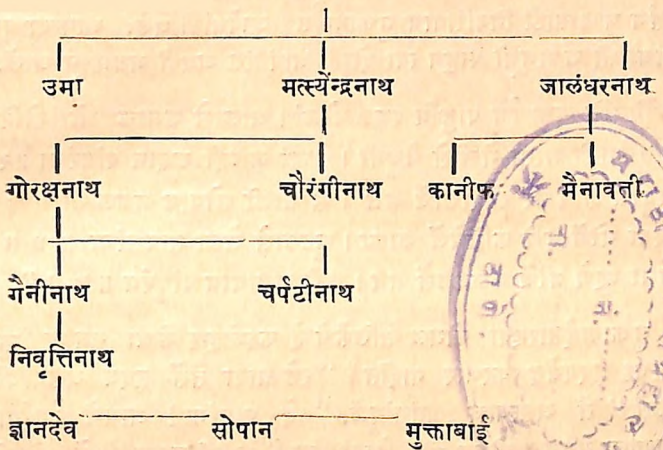 उमा मत्स्येन्द्रनाथ जालंधरनाथ
गोरक्षनाथ चौरंगीनाथ कानीफ मैनावती
गैनीनाथ चर्पटीनाथ
निवृत्तिनाथ
ज्ञानदेव सोपान मुक्ताबाई